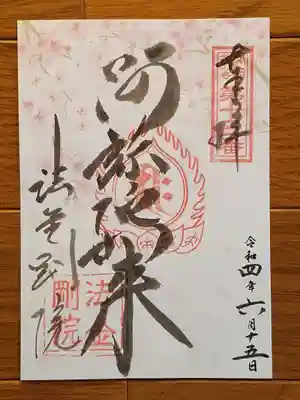 奉拝
令和四年六月十五日
阿弥陀如来
法金剛院
法金
剛院